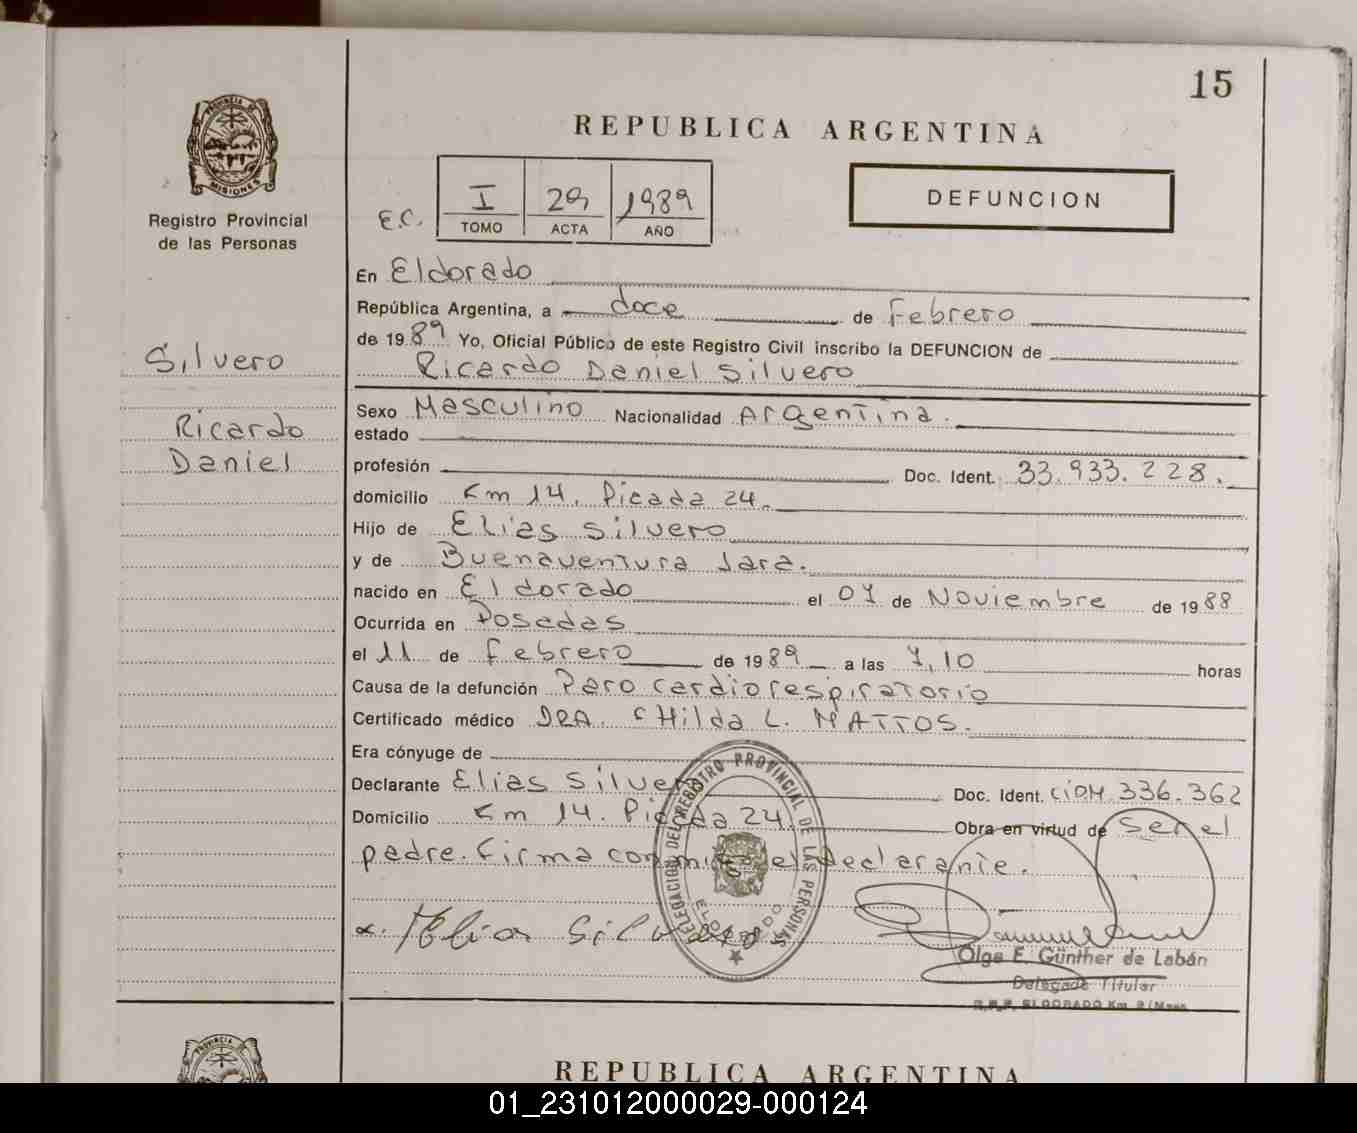 15
REPUBLICA ARGENTINA
PROVINCIA DE
MISIONES
Registro Provincial
de las Personas
E.C.
I 29 1989
TOMO ACTA AÑO
DEFUNCION
En Eldorado
República Argentina, a doce de Febrero
de 1989 Yo, Oficial Público de este Registro Civil inscribo la DEFUNCION de
Ricardo Daniel Silvero
Silvero
Ricardo
Daniel
Sexo Masculino Nacionalidad Argentina.
estado
profesión Doc. Ident. 33.933.228.
domicilio Km 14. Picada 24.
Hijo de Elias Silvero
y de Buenaventura Jara.
nacido en Eldorado el 07 de Noviembre de 1988
Ocurrida en Posadas
el 11 de febrero de 1989 a las 7,10 horas
Causa de la defunción Paro cardiorespiratorio
Certificado médico DRA. Hilda L. MATTOS.
Era cónyuge de
Declarante Elias Silvero Doc. Ident. CIDM 336.362
Domicilio Km 14. Picada 24. Obra en virtud de ser el
padre. Firma conmigo el declarante.
Elias Silvero
DELEGACION DEL REGISTRO PROVINCIAL DE LAS PERSONAS
ELDORADO
Olga E. Günther de Labán
Delegada Titular
R.P.P. ELDORADO Km. 9 / Mnes.
PROVINCIA DE
REPUBLICA ARGENTINA
01_231012000029-000124